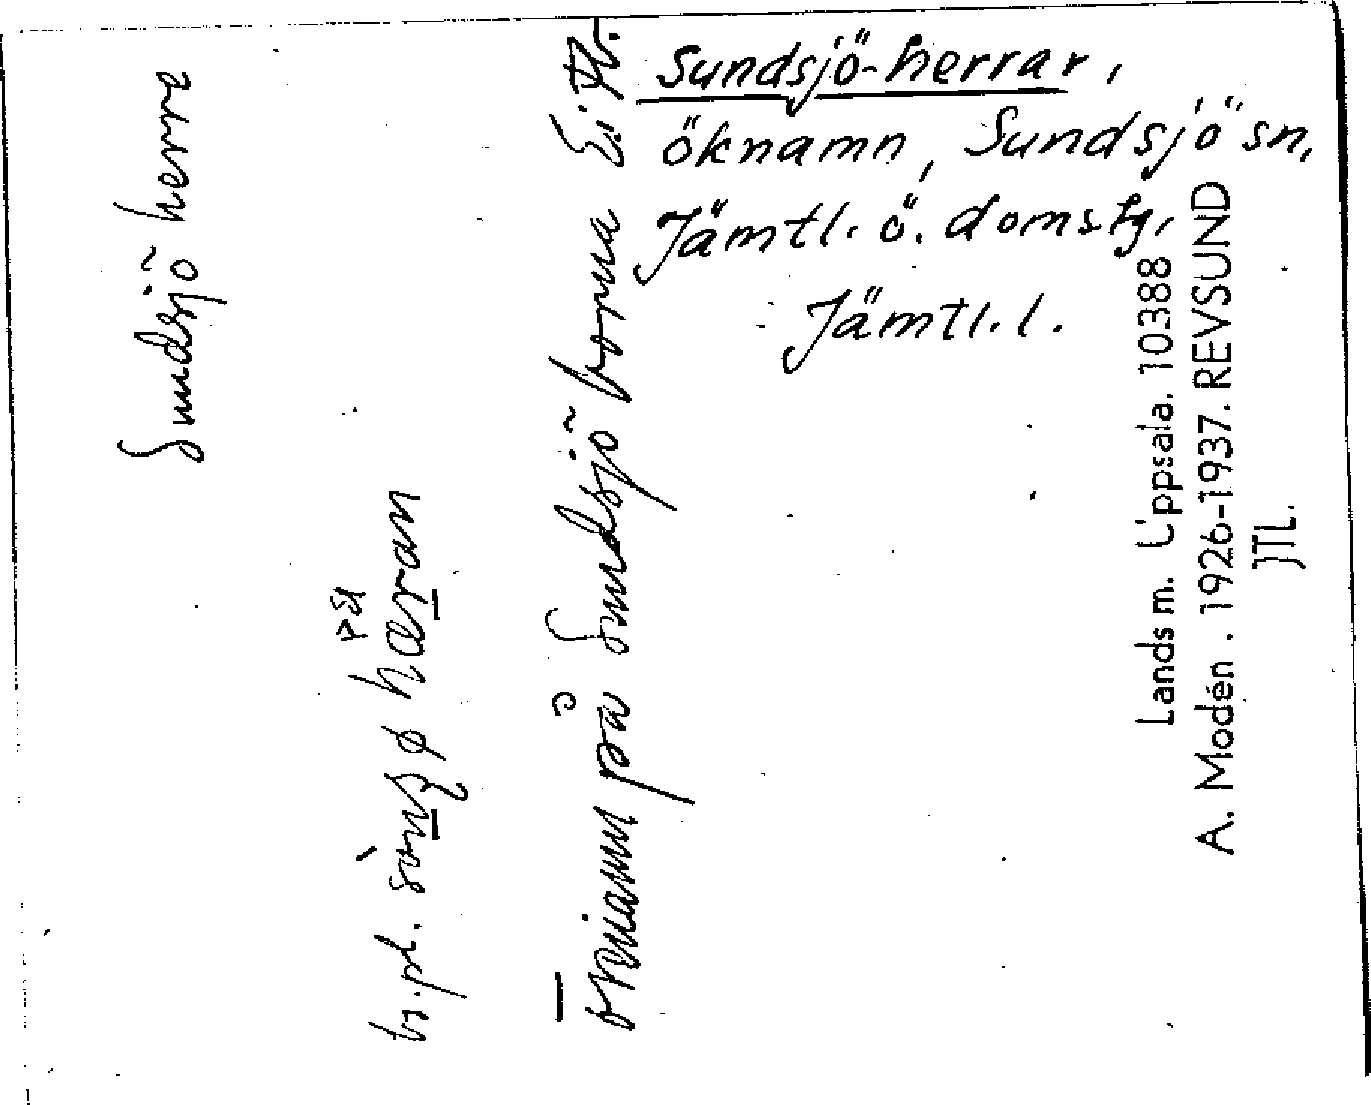 Sundsjö-herrar,
öknamn, Sundsjö sn,
Jämtl. ö. domsg,
Jämtl. l.
Sundsjö herre
på
haran
öknamn på Sundsjö borna
Landsm. Uppsala. 10388
A. Modén. 1926-1937. REVSUND
JTL.